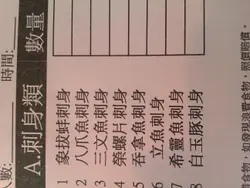 數:
時間:
A.刺身類 數量
1 象拔蚌刺身
2 八爪魚刺身
3 三文魚刺身
4 榮螺片刺身
5 吞拿魚刺身
6 立魚刺身
7 希靈魚刺身
8 白玉豚刺身
如發現浪費食物 照價賠償。